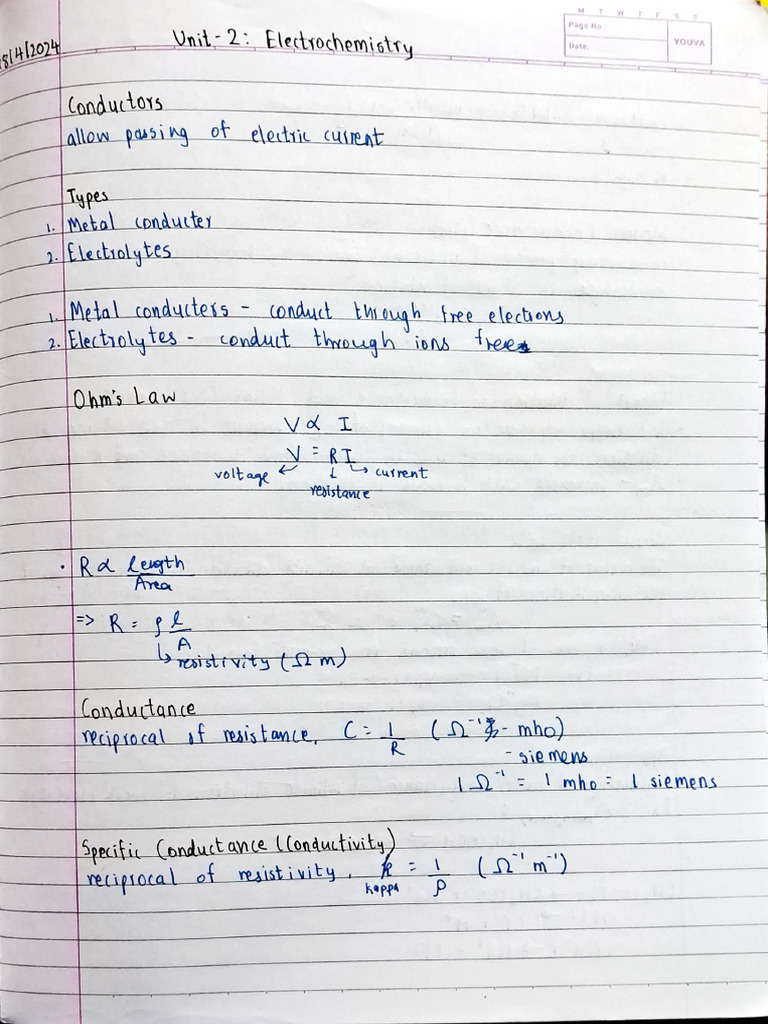 M T W T F S S
Page No.:
Date:
YOUVA
8/4/2024
Unit-2: Electrochemistry
Conductors
allow passing of electric current
Types
1. Metal conducter
2. Electrolytes
1. Metal conducters - conduct through free electrons
2. Electrolytes - conduct through ions free
Ohm's Law
V ∝ I
V = RI
voltage ← ↓ → current
resistance
• R ∝ length
Area
=> R = ρ l
A
↳ resistivity (Ω m)
Conductance
reciprocal of resistance, C = 1/R (Ω⁻¹ - mho)
- siemens
1 Ω⁻¹ = 1 mho = 1 siemens
Specific Conductance (Conductivity)
reciprocal of resistivity, k = 1/ρ (Ω⁻¹ m⁻¹)
kappa